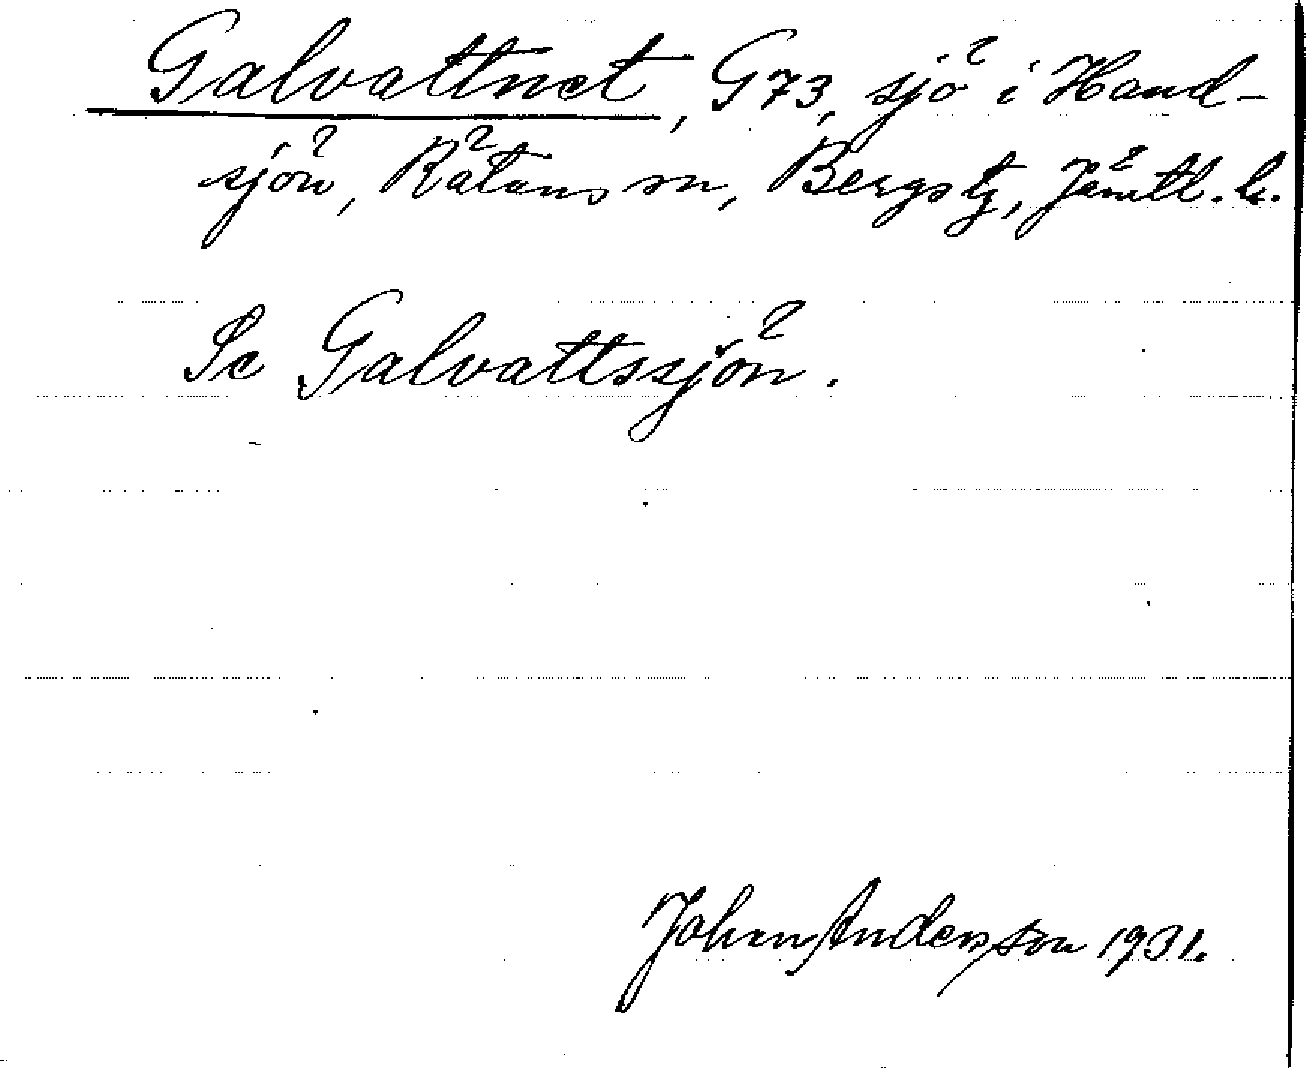 Galvattnet, G73, sjö i Hand-
sjön, Rätans sn, Bergs tg, Jämtl. l.
Se Galvattssjön.
Johan Andersson 1931.